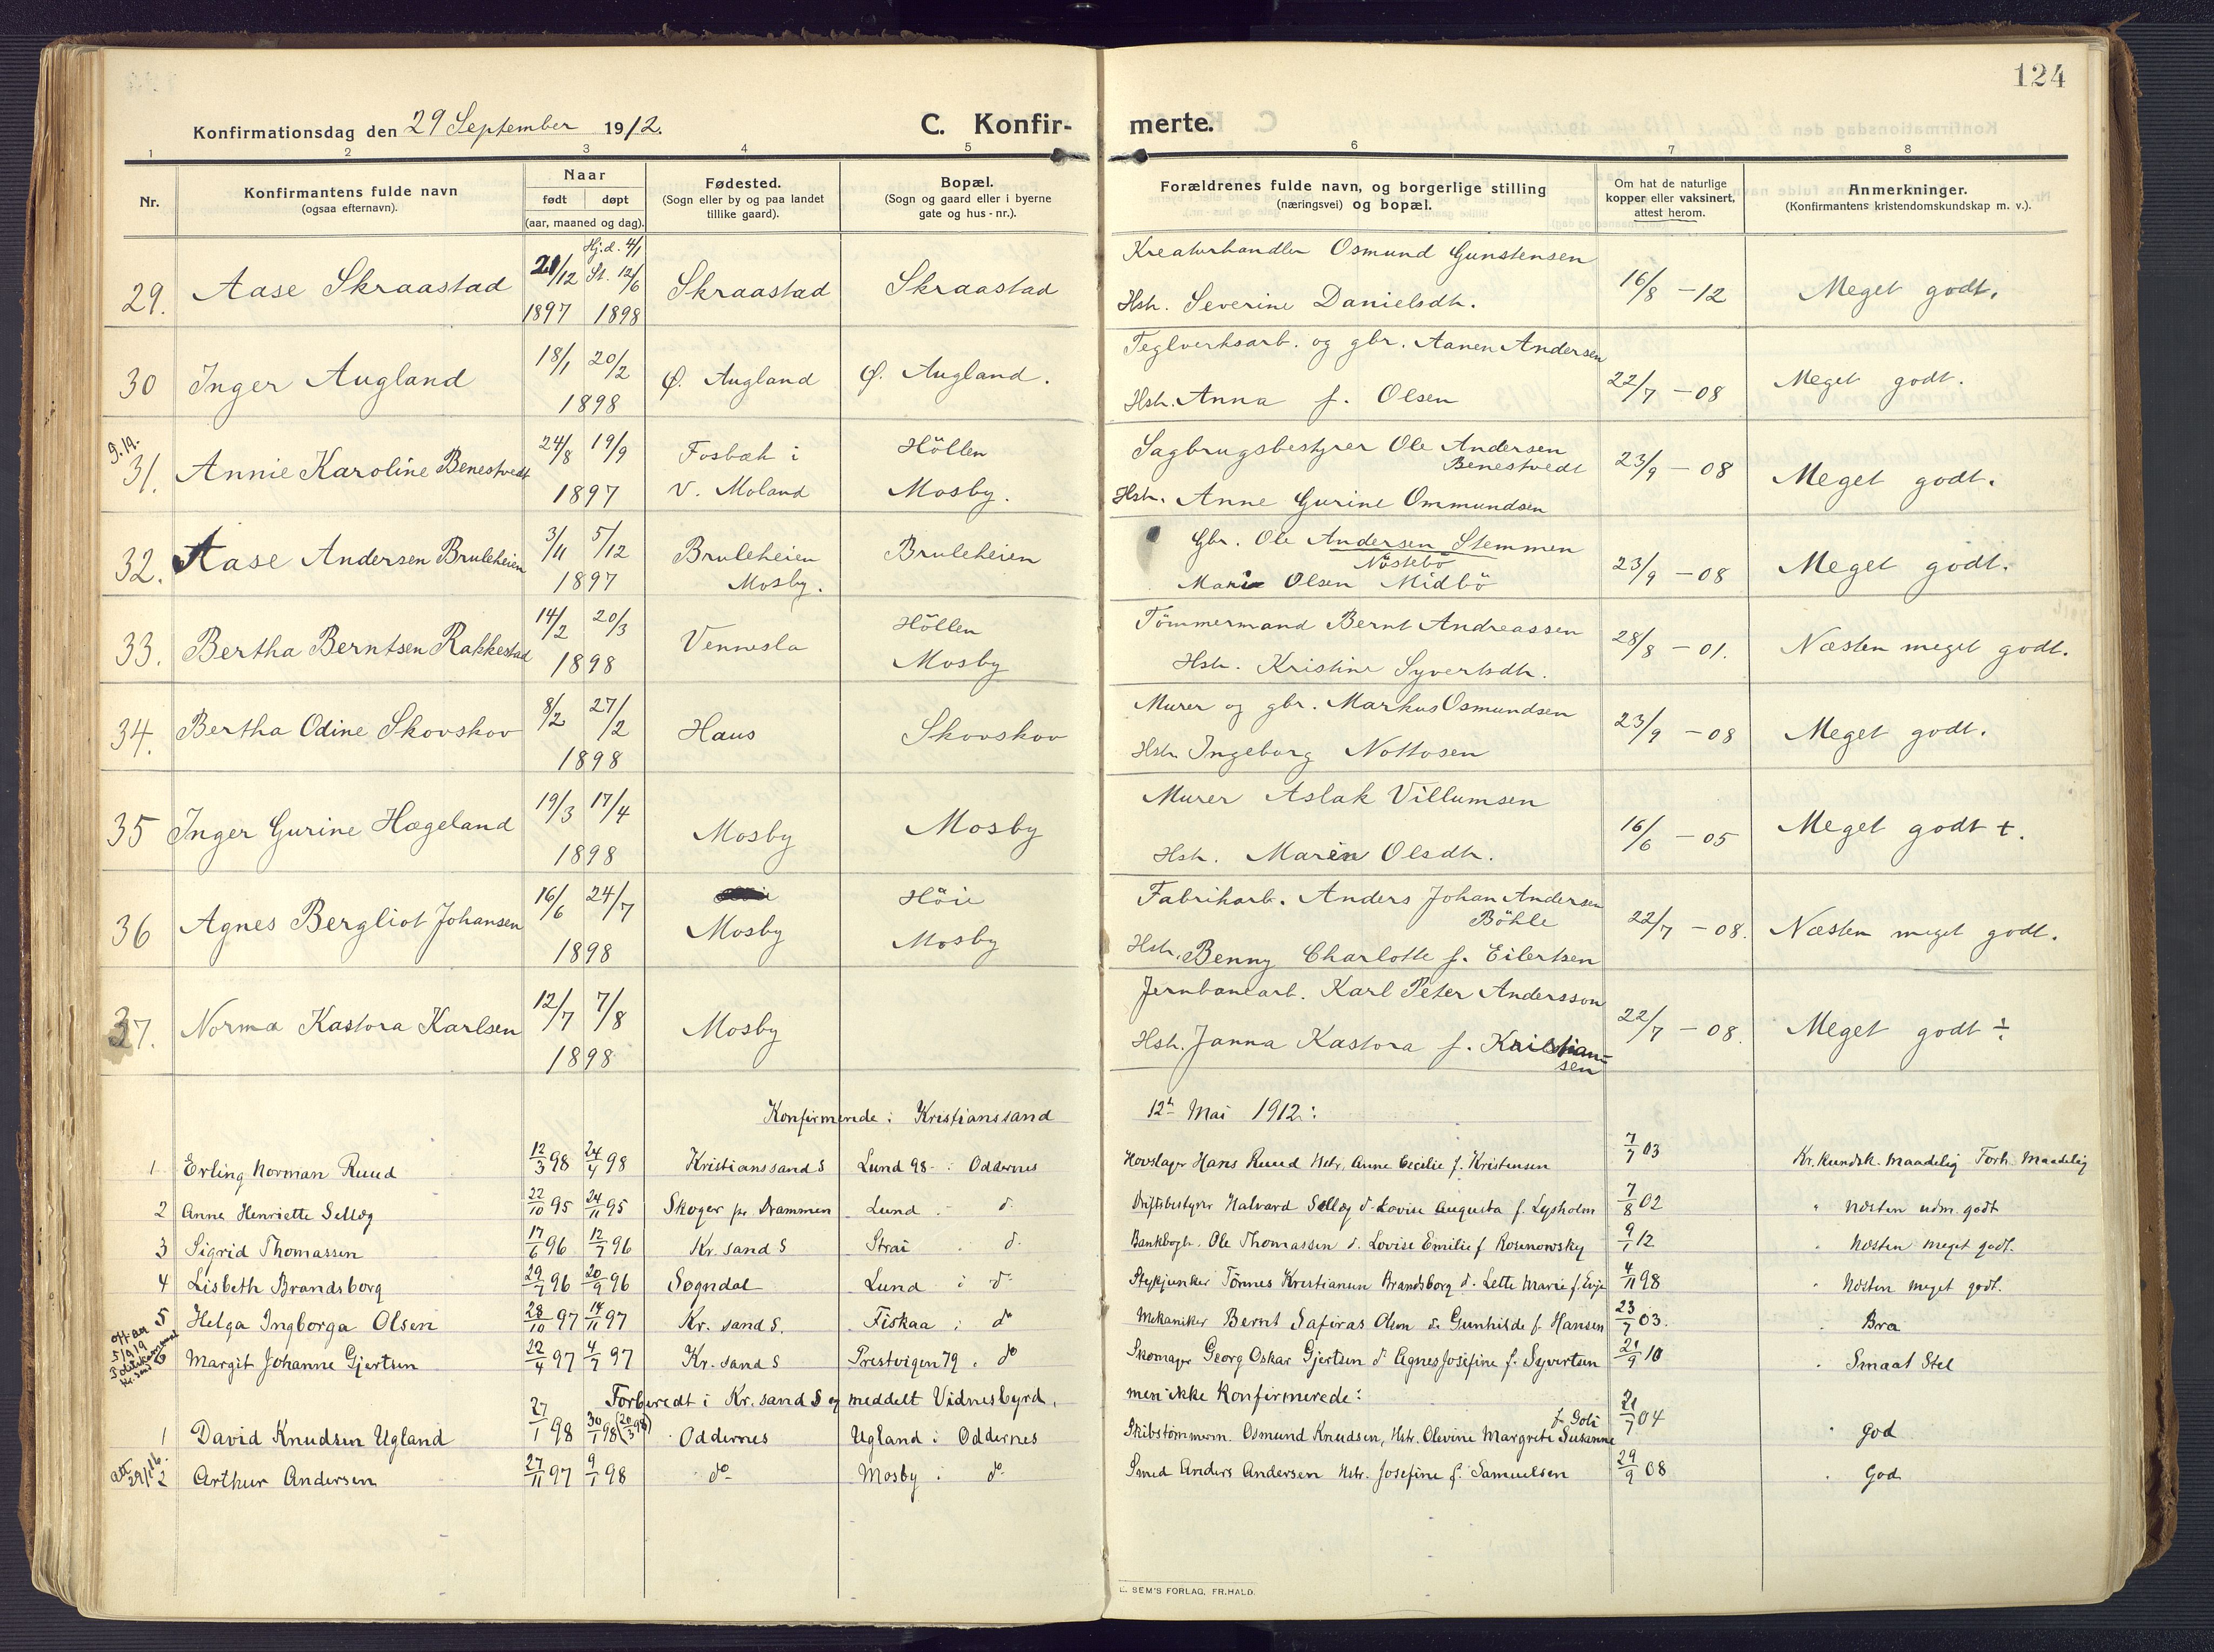 124
Konfirmationsdag den 29 September 1912.
C. Konfir-merte.
1 2 3 4 5 6 7 8
Nr.
Konfirmantens fulde navn
(ogsaa efternavn).
Naar
født døpt
(aar, maaned og dag).
Fødested.
(Sogn eller by og paa landet
tillike gaard).
Bopæl.
(Sogn og gaard eller i byerne
gate og hus-nr.).
Forældrenes fulde navn, og borgerlige stilling
(næringsvei) og bopæl.
Om hat de naturlige
kopper eller vaksinert,
attest herom.
Anmerkninger.
(Konfirmantens kristendomskundskap m. v.).
Hj.d. 4/1 Kreaturhandler Osmund Gunstensen
29. Aase Skraastad 21/12 St. 12/6 Skraastad Skraastad 16/8 - 12 Meget godt.
1897 1898 Hstr. Severine Danielsdtr.
Teglverksarb. og gbr. Aanen Andersen
30 Inger Augland 18/1 20/2 Ø. Augland Ø. Augland. 22/7 - 08 Meget godt.
1898 Hstr. Anna f. Olsen
24/8 19/9 Fosbæk i Höllen Sagbrugsbestyrer Ole Andersen
31. Annie Karoline Benestvedt Benestvedt 23/9 - 08 Meget godt.
1897 V. Moland Mosby. Hstr. Anne Gurine Ommundsen
3/11 5/12 Gbr. Ole Andersen Stemmen
32. Aase Andersen Bruleheien Bruleheien Bruleheien Nöstebö 23/9 - 08 Meget godt.
1897 Mosby. Marie Olsen Midbö
14/2 20/3 Höllen Tömmermand Bernt Andreassen
33. Bertha Berntsen Rakkestad Vennesla 28/8 - 01. Næsten meget godt.
1898 Mosby Hstr. Kristine Syvertsdtr.
8/2 27/2 Murer og gbr. Markus Osmundsen
34. Bertha Odine Skovskov Haus Skovskov 23/9 - 08 Meget godt.
1898 Hstr. Ingeborg Nottosen
19/3 17/4 Murer Aslak Villumsen
35 Inger Gurine Hægeland Mosby Mosby 16/6 - 05 Meget godt +.
1898 Hstr. Maren Olsdtr.
16/6 24/7 Höie Fabrikarb. Anders Johan Andersen
36 Agnes Bergliot Johansen Mosby Böhle 22/7 - 08. Næsten meget godt.
1898 Mosby Hstr. Benny Charlotte f. Eilertsen
12/7 7/8 Jernbanearb. Karl Peter Andersson
37. Norma Kastora Karlsen Mosby 22/7 - 08. Meget godt ÷
1898 Hstr. Janna Kastora f. Kristian=
sen
Konfirmerede i Kristianssand 12te Mai 1912:
1 Erling Norman Ruud 12/3 98 24/4 98 Kristianssand S Lund 98 - i Oddernes Hovslager Hans Ruud Hstr. Anne Cecilie f. Kristensen 7/7 03 Kr. kundsk. Maadelig Forh. Maadelig
2 Anne Henriette Selleg 22/10 95 24/11 95 Skoger pr Drammen Lund - do Driftsbestyrer Halvard Selleg d. Lovise Augusta f. Lysholm 7/8 02 " Næsten udm. godt
3 Sigrid Thomassen 17/6 96 12/7 96 Kr. sand S Strai do Bankbogh. Ole Thomassen d. Lovise Emilie f Rosenowsky 9/1 12 Næsten meget godt.
4 Lisbeth Brandsborg 29/7 96 20/9 96 Sogndal Lund i do Stykjunker Tönnes Kristiansen Brandsborg d. Lette Marie f. Evje 4/11 98 Næsten meget godt.
5 Helga Ingborga Olsen 28/10 97 14/11 97 Kr. sand S. Fiskaa i do Mekaniker Bernt Safiras Olsen d. Gunhilde f Hansen 23/7 03. Bra
5/9 19
Politikammeret
Kr. sand
6 Margit Johanne Gjertsen 22/4 97 4/7 97 Kr. sand S Prestvigen 79 i do Skomager Georg Oskar Gjertsen d. Agnes Josefine f. Syvertsen 21/9 10 Smaat Stel
Forberedt i Kr. sand S og meddelt Vidnesbyrd, men ikke Konfirmerede:
f. Goli
1 David Knudsen Ugland 27/1 98 30/1 98 (20/3 98) Oddernes Ugland i Oddernes Skibstömmerm. Osmund Knudsen, Hstr. Olevine Margrete Susanne 21/7 04 God
att 29/1 16.
2 Arthur Andersen 27/11 97 9/1 98 do Mosby i do Smed Anders Andersen Hstr. Josefine f. Samuelsen 29/9 08 God
E. SEM'S FORLAG, FR.HALD.